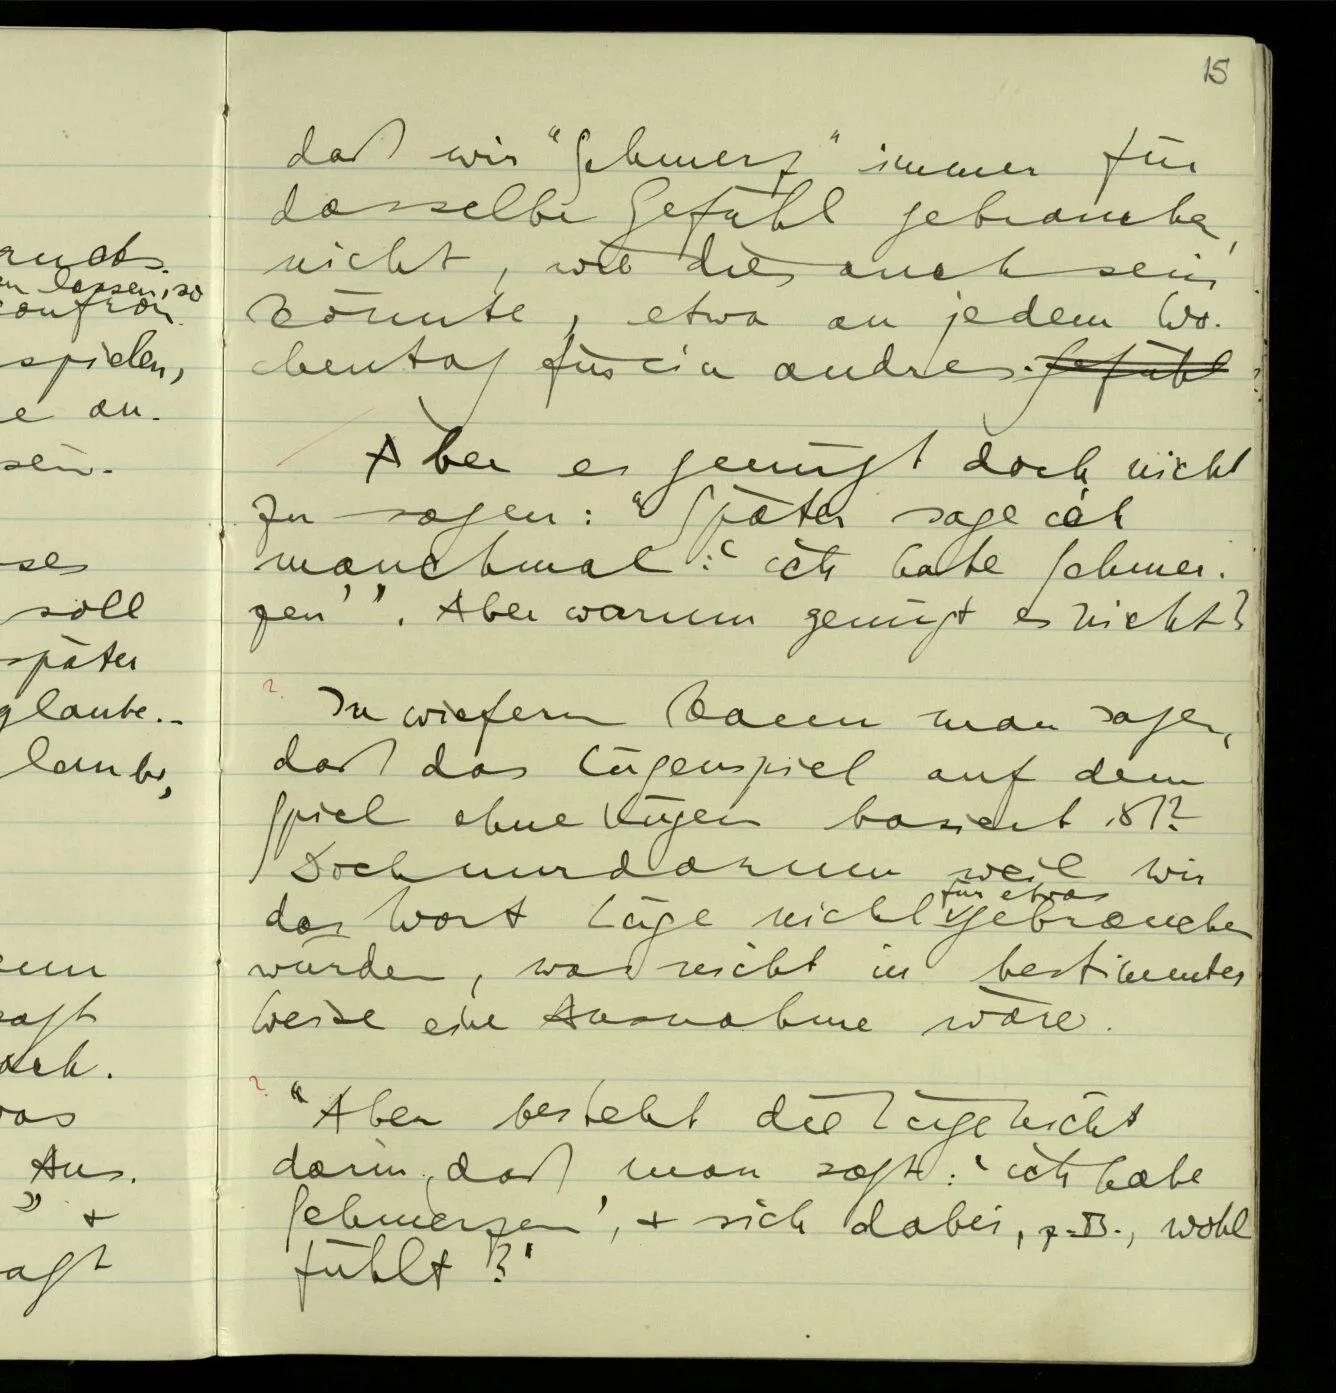 15
daß wir "Schmerz" immer für
dasselbe Gefühl gebrauchen,
nicht, wie dies auch sein
könnte, etwa an jedem Wo-
chentag für ein andres. Gefühl
Aber es genügt doch nicht
zu sagen: "Später sage ich
manchmal: 'ich habe Schmer-
zen'". Aber warum genügt es nicht?
? In wiefern kann man sagen,
daß das Lügenspiel auf dem
Spiel ohne Lügen basiert ist?
Doch nur darum weil wir
für etwas
das Wort Lüge nicht gebrauchen
würden, was nicht in bestimmter
Weise eine Ausnahme wäre.
? "Aber besteht die Lüge nicht
darin, daß man sagt: 'ich habe
Schmerzen', + sich dabei, z.B., wohl
fühlt?"
spielen,
e an-
sein.
soll
später
glaube.-
ach.
Aus-
" +